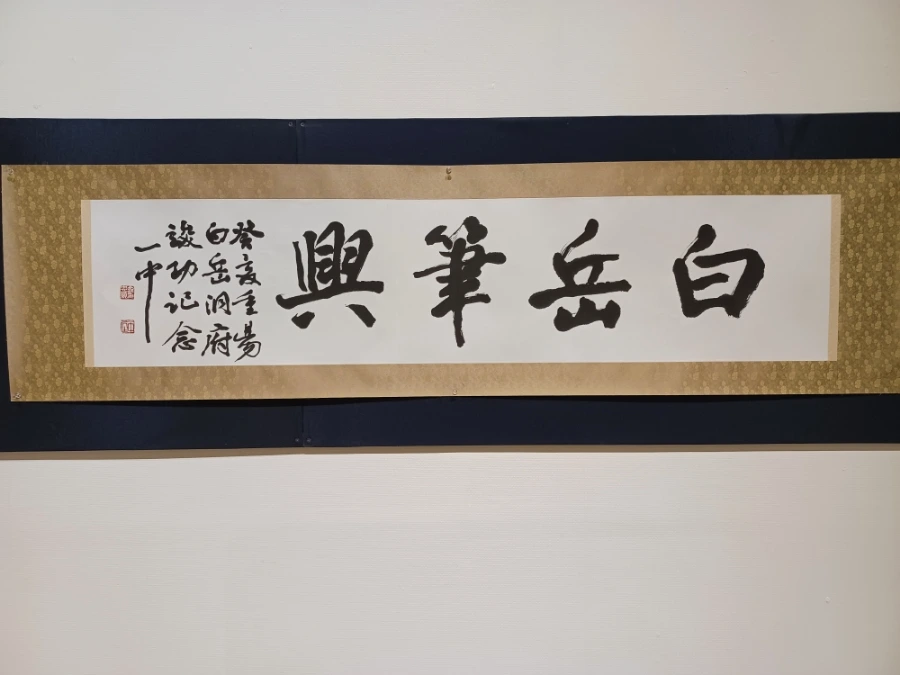 白岳筆興
癸亥重陽
白岳洞府
竣功記念
一中